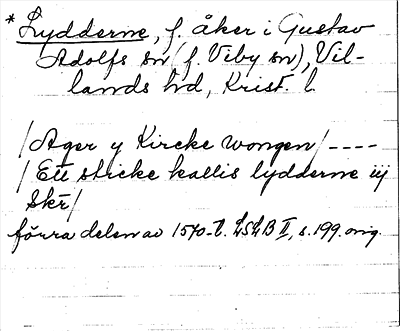 *Lydderne, f. åker i Gustav
Adolfs sn (f. Viby sn), Vil-
lands hd, Krist. l.
/Ager y Kircke wongen/ ----
/Ett sticke kallis lydderne iij
Skr/
förra delen av 1570-t. LSLB II, s. 199. omg.